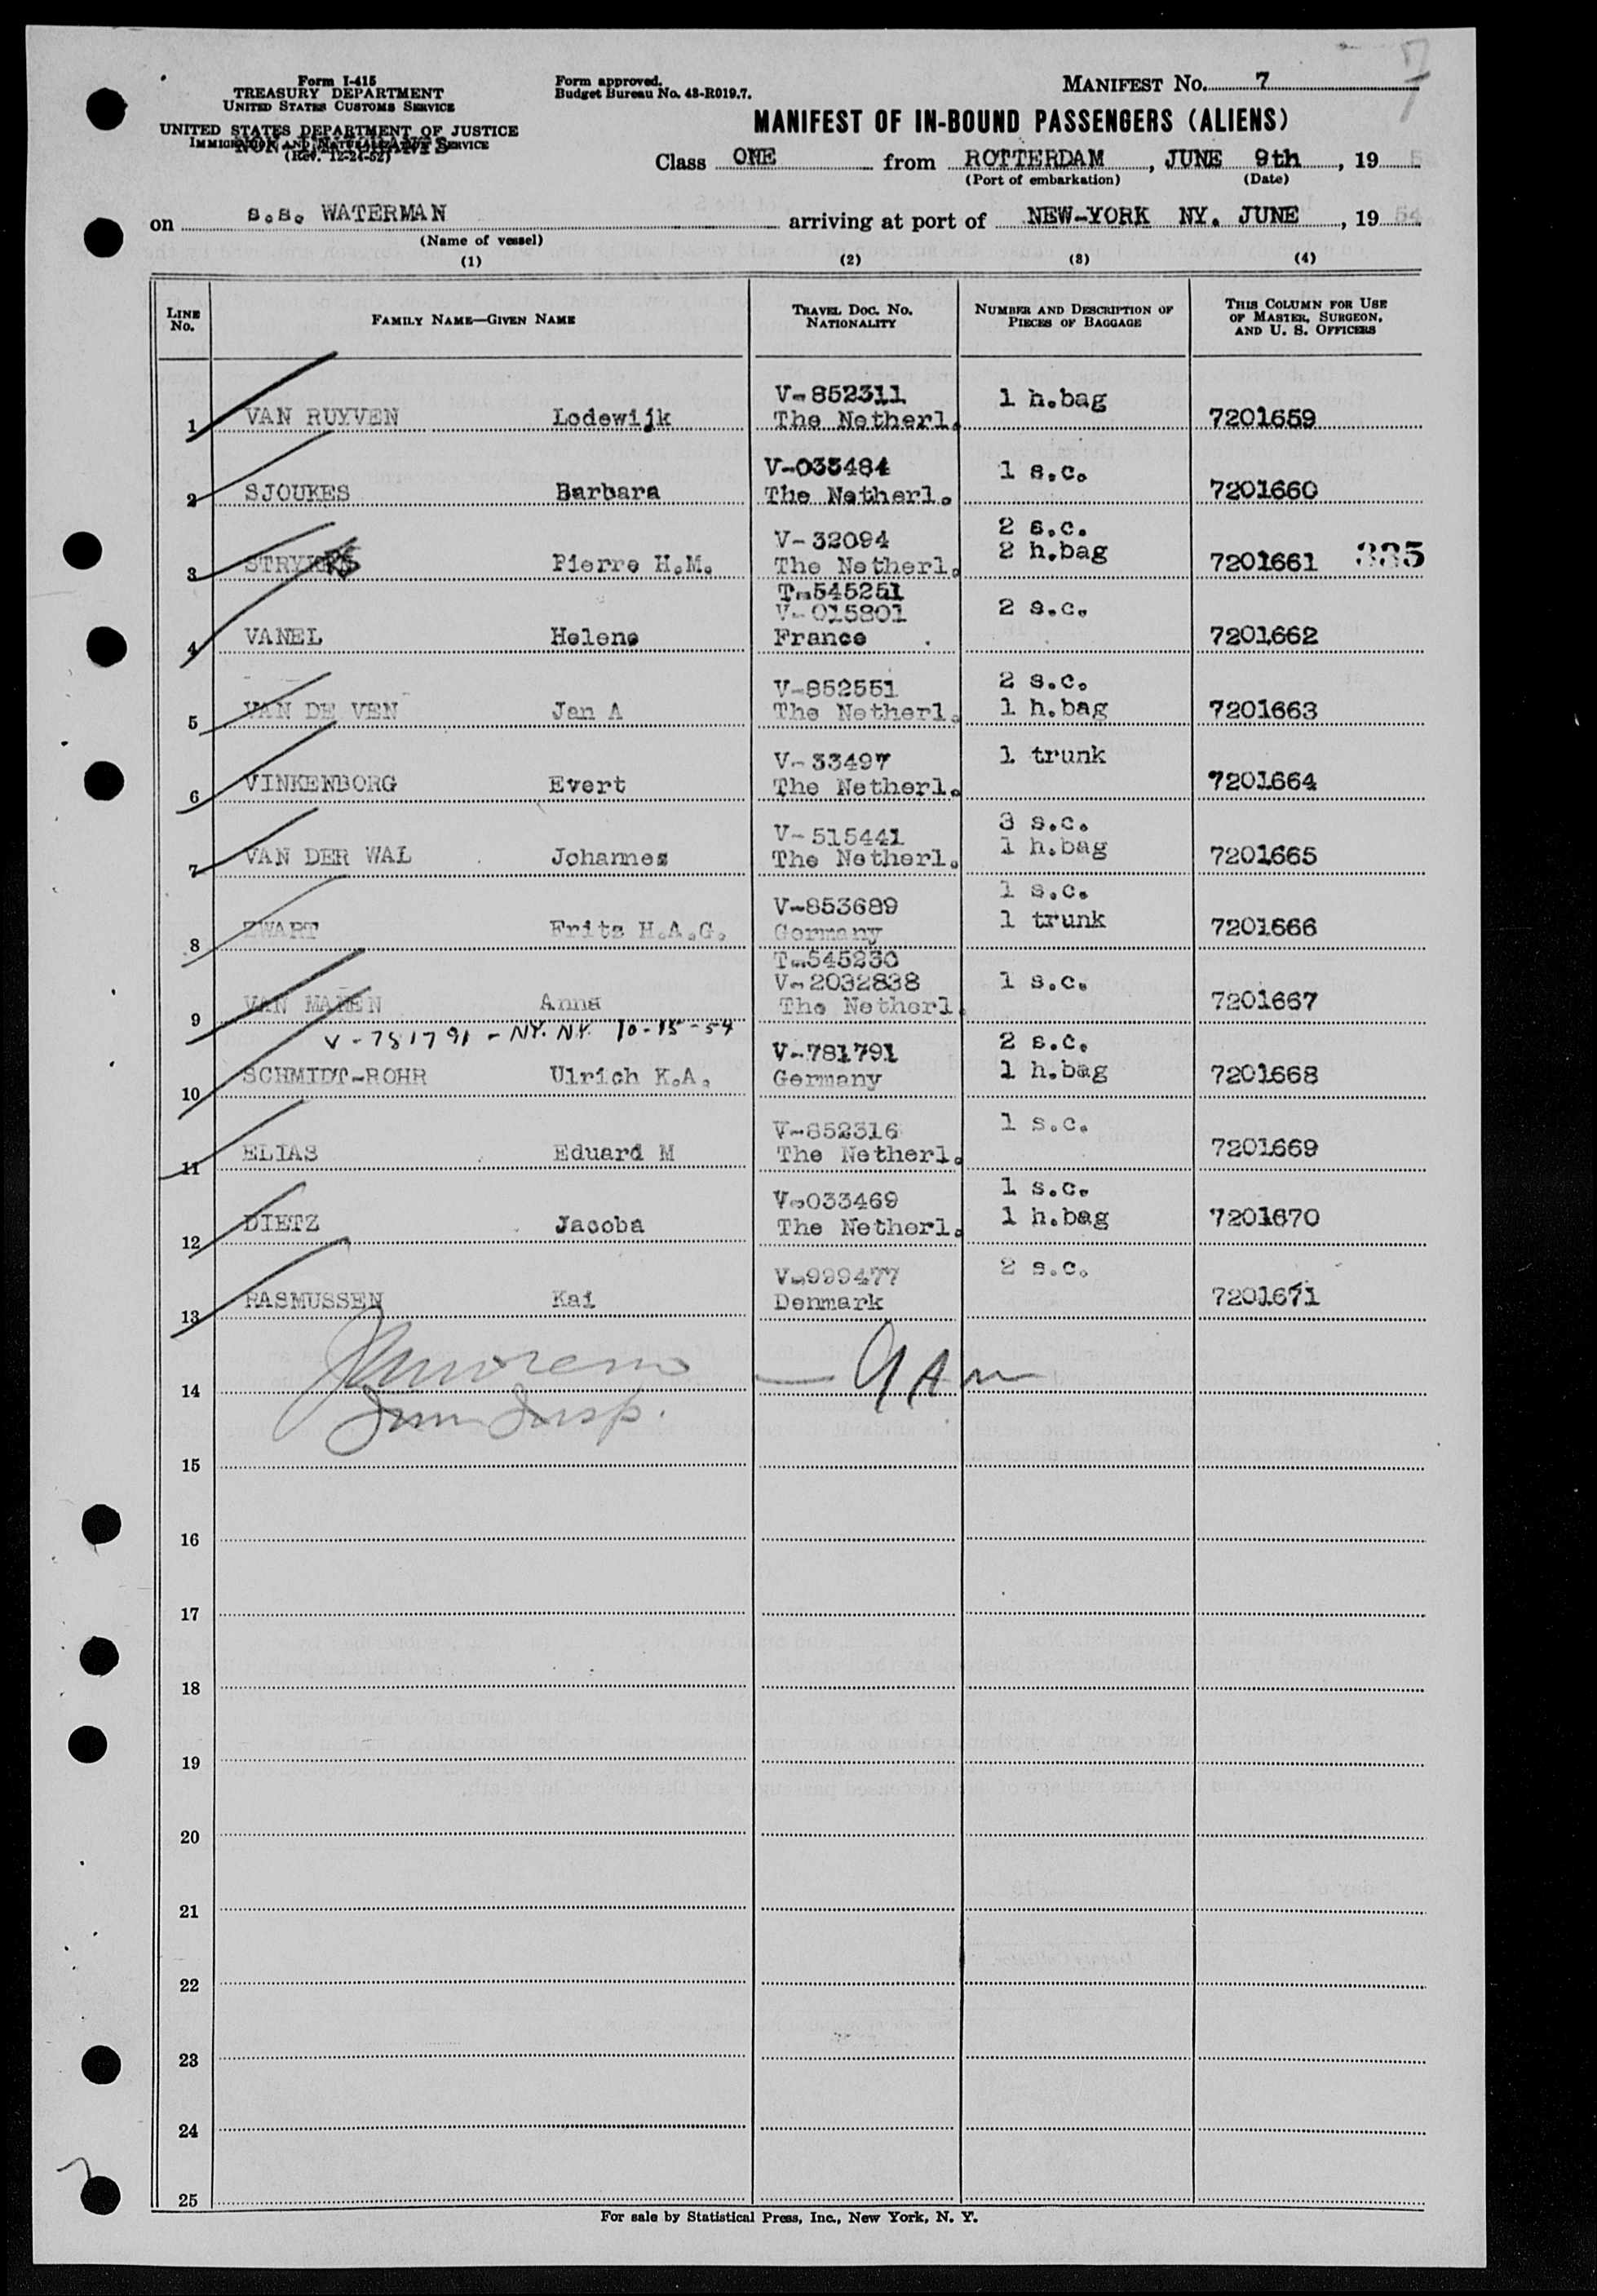 7
Form I-415
TREASURY DEPARTMENT
UNITED STATES CUSTOMS SERVICE
UNITED STATES DEPARTMENT OF JUSTICE
IMMIGRATION AND NATURALIZATION SERVICE
(Rev. 12-24-52)
Form approved.
Budget Bureau No. 43-R019.7.
MANIFEST No. 7
MANIFEST OF IN-BOUND PASSENGERS (ALIENS)
Class ONE from ROTTERDAM, JUNE 9th, 19 5
(Port of embarkation) (Date)
on s.s. WATERMAN arriving at port of NEW-YORK NY. JUNE, 19 54
(Name of vessel)
(1) (2) (3) (4)
LINE No. FAMILY NAME—GIVEN NAME TRAVEL DOC. NO. NATIONALITY NUMBER AND DESCRIPTION OF PIECES OF BAGGAGE THIS COLUMN FOR USE OF MASTER, SURGEON, AND U. S. OFFICERS
V-852311 1 h.bag
1 VAN RUYVEN Lodewijk The Netherl. 7201659
V-033484 1 s.c.
2 SJOUKES Barbara The Netherl. 7201660
V-32094 2 s.c.
2 h.bag
3 Pierre H.M. The Netherl. 7201661 335
T-545251
V-015801 2 s.c.
4 VANEL Helene France 7201662
V-852551 2 s.c.
5 VAN DE VEN Jan A The Netherl. 1 h.bag 7201663
V-33497 1 trunk
6 VINKENBORG Evert The Netherl. 7201664
V-515441 3 s.c.
1 h.bag
7 VAN DER WAL Johannes The Netherl. 7201665
1 s.c.
V-853689 1 trunk
8 ZWART Frits H.A.G. Germany 7201666
T-545230
V-2032838 1 s.c.
9 VAN MANEN Anna The Netherl. 7201667
V-781791 - NY. NY. 10-15-54
V-781791 2 s.c.
10 SCHMIDT-ROHR Ulrich K.A. Germany 1 h.bag 7201668
V-852316 1 s.c.
11 ELIAS Eduard M The Netherl. 7201669
V-033469 1 s.c.
12 DIETZ Jacoba The Netherl. 1 h.bag 7201670
V-999477 2 s.c.
13 RASMUSSEN Kai Denmark 7201671
14 — 9 AM
Imm Insp.
15
16
17
18
19
20
21
22
23
24
25
For sale by Statistical Press, Inc., New York, N. Y.